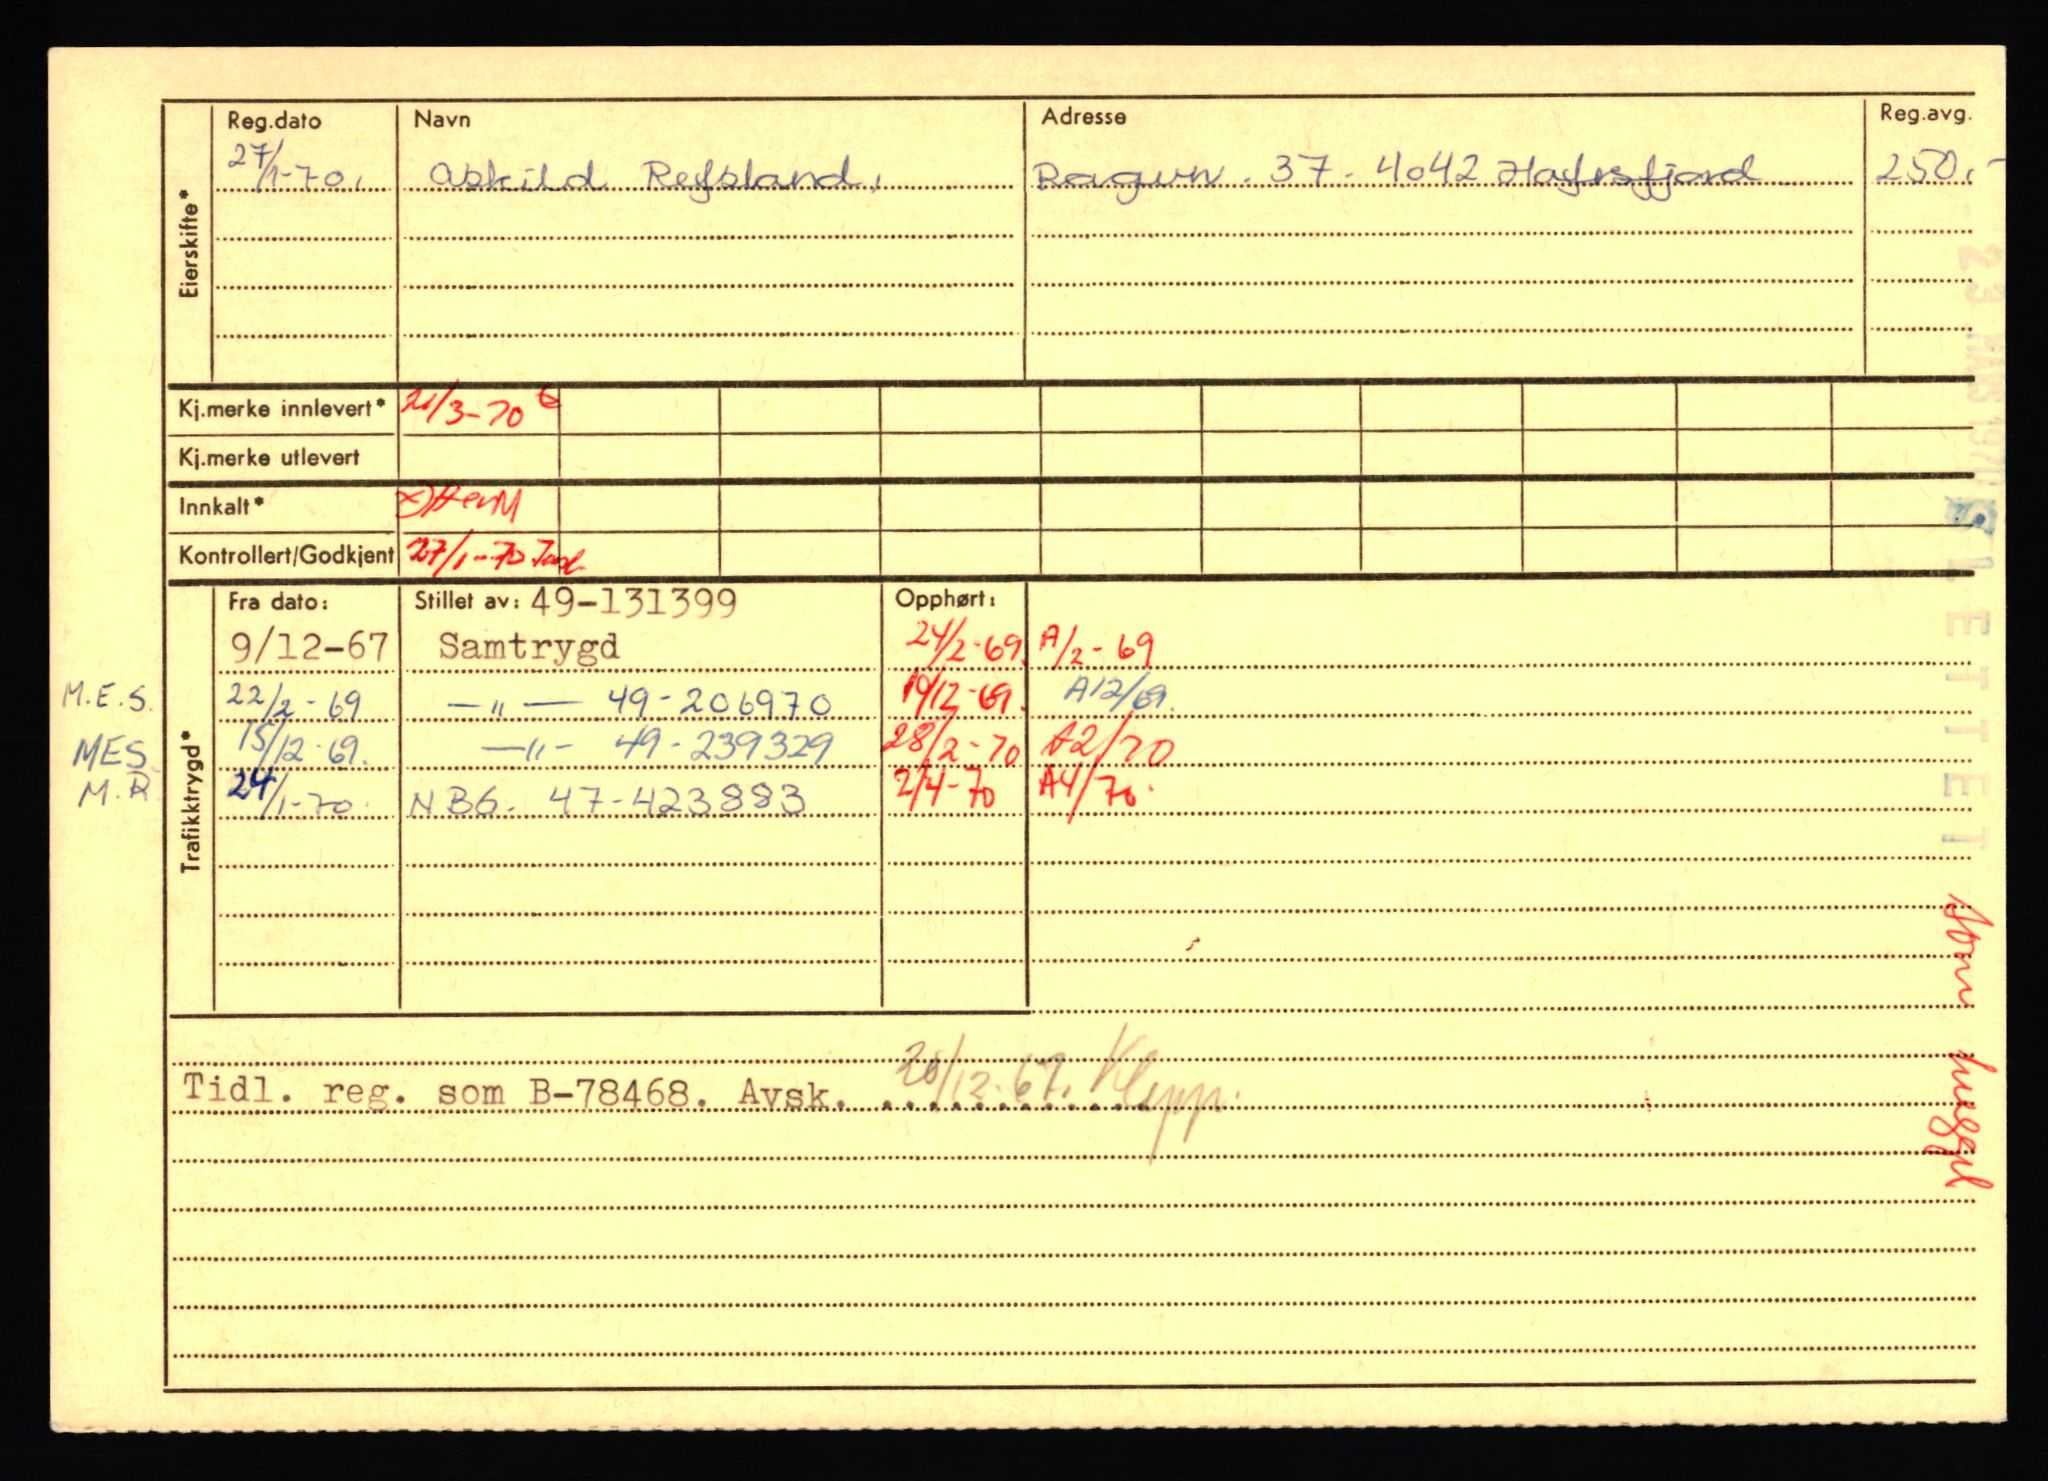 Reg.dato Navn Adresse Reg.avg.
27/1-70. Askild Refsland, 37. 4042 Hafrsfjord 250,-
Eierskifte*
Kj.merke innlevert* 21/3-70
Kj.merke utlevert
Innkalt*
Kontrollert/Godkjent 27/1-70
Fra dato: Stillet av: 49-131399 Opphørt:
9/12-67 Samtrygd 24/2-69. A/2-69
M.E.S. 22/2-69 —"— 49-206970 19/12-69. A12/69.
MES. 15/12-69. —"— 49-239329 28/2-70 A2/70
M.R. 24/1-70. NBG. 47-423883 2/4-70 A4/70.
Trafikktrygd*
Tidl. reg. som B-78468. Avsk. 20/12-67. Klepp.
23 MARS 1970
SLETTET
Som hugget